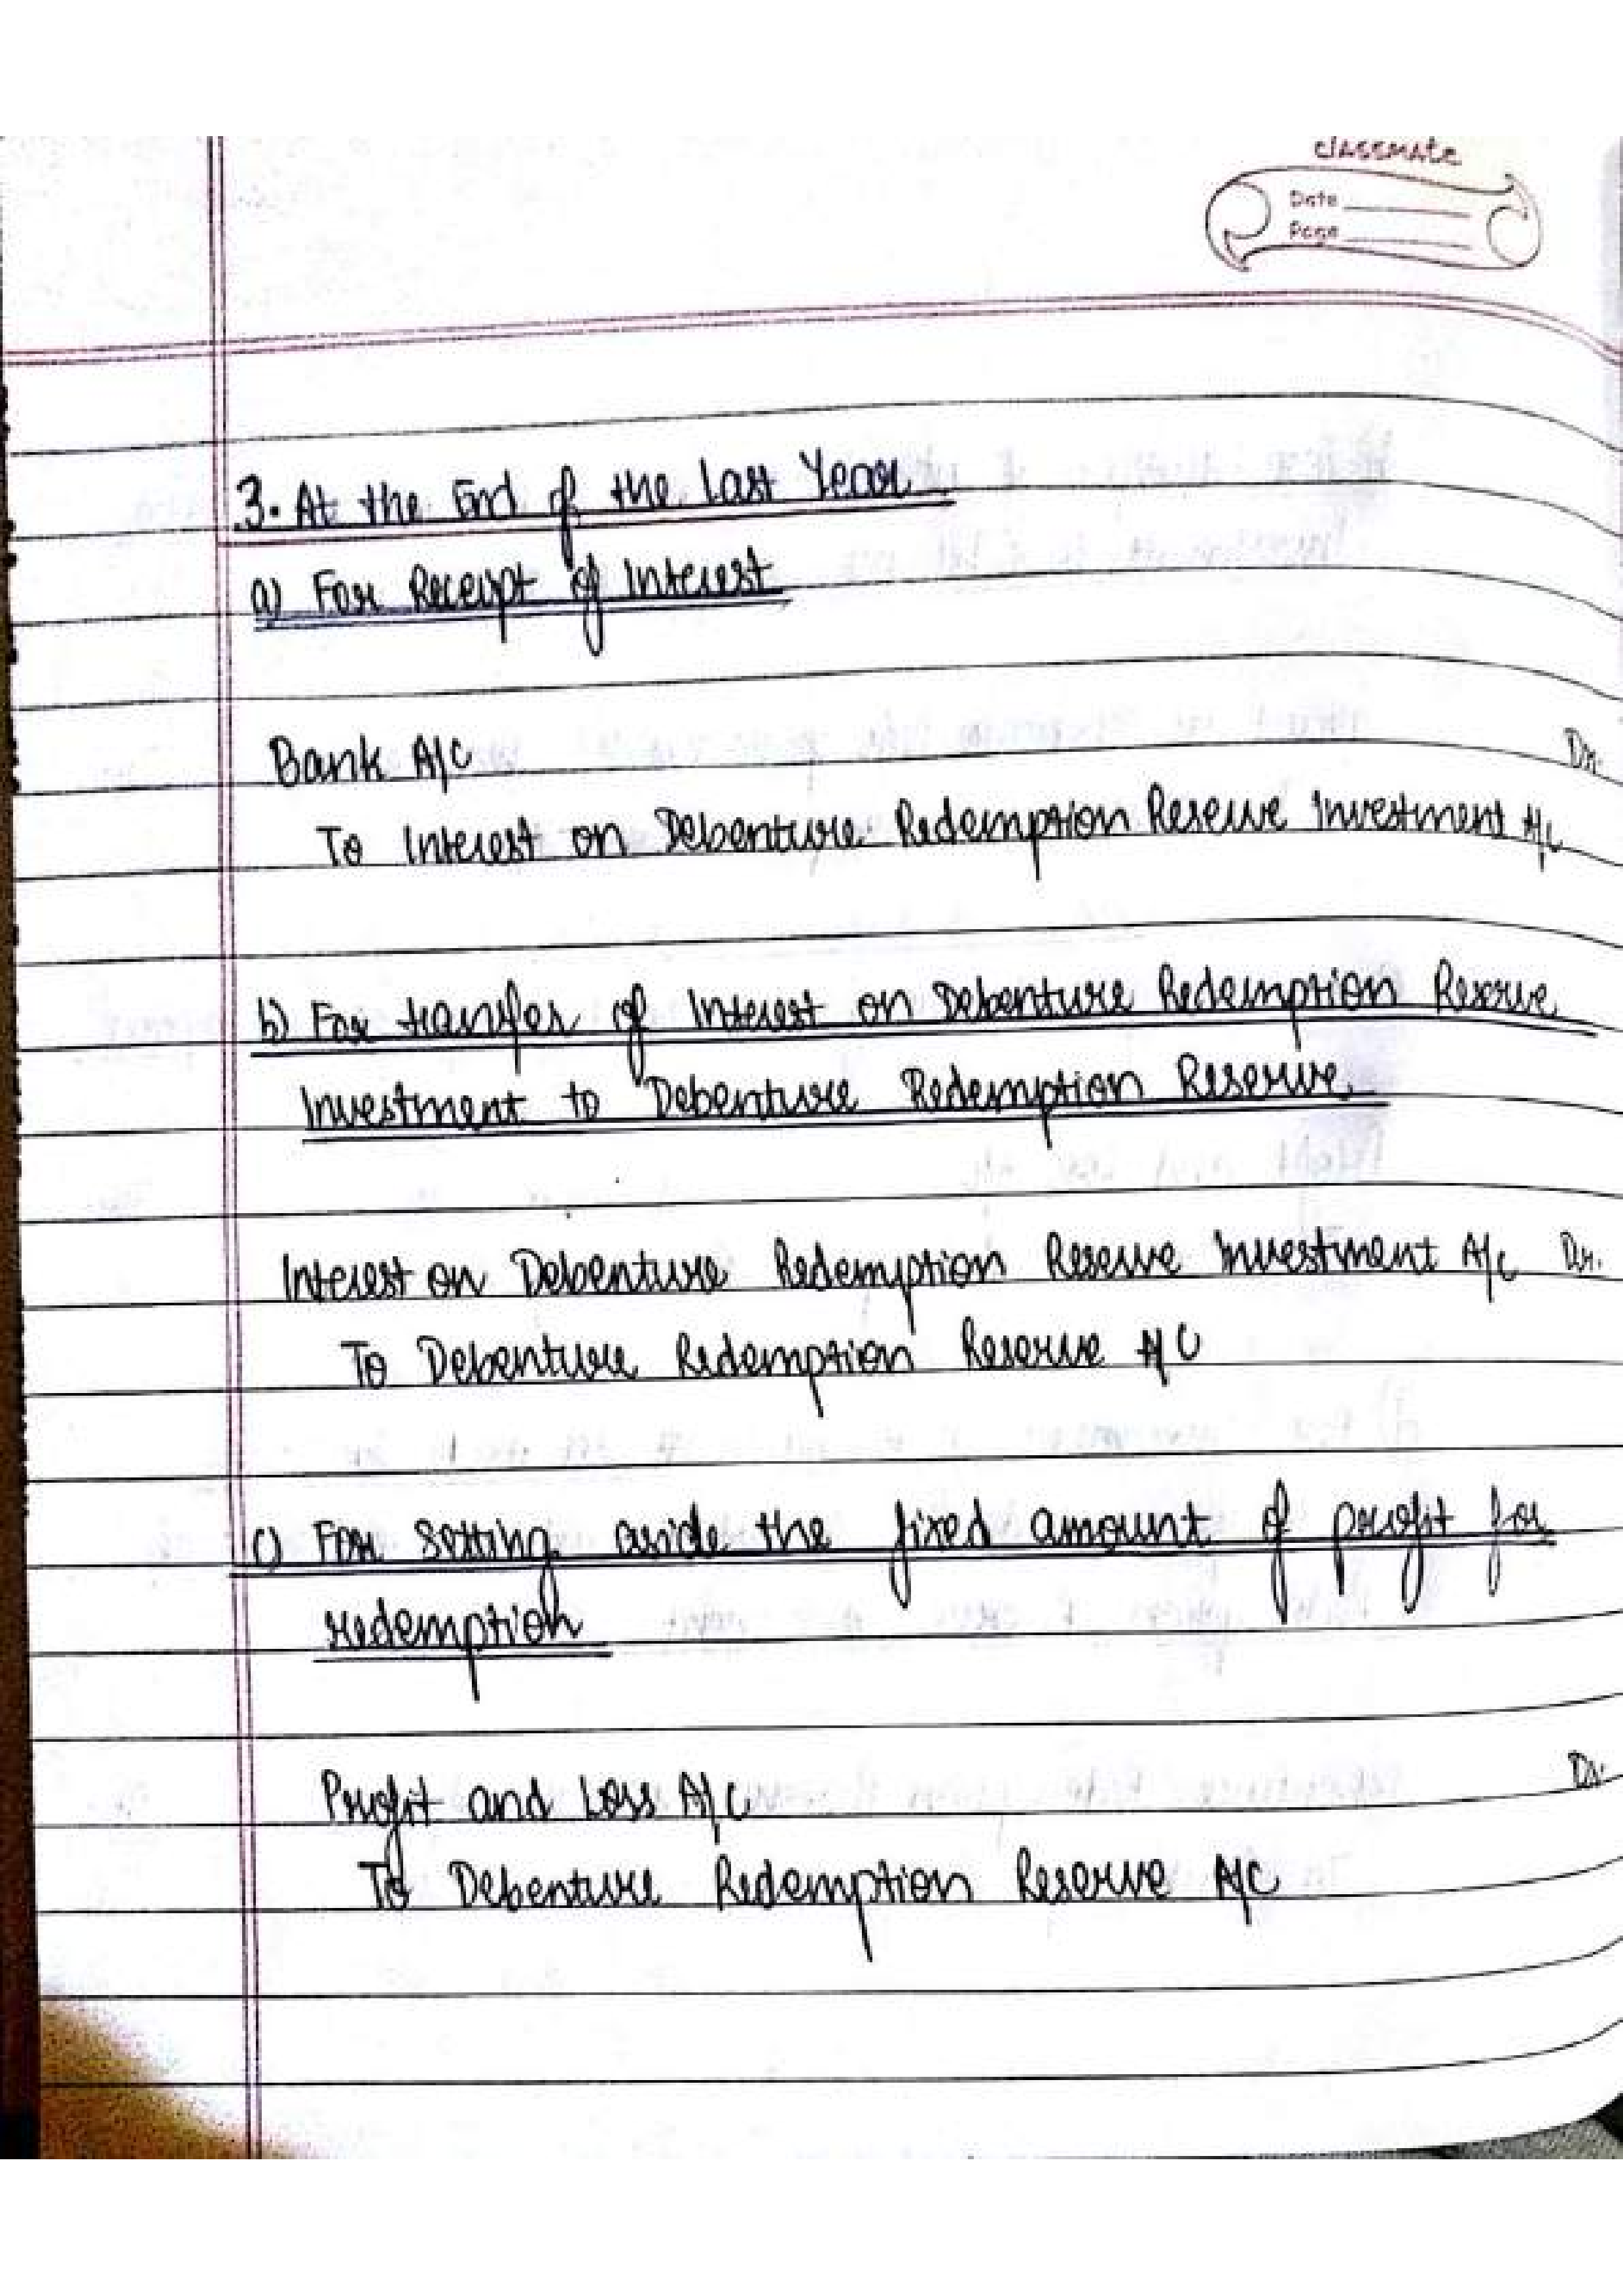 classmate
Date
Page
3. At the End of the Last Year
a) For Receipt of Interest
Bank A/C Dr.
To Interest on Debenture Redemption Reserve Investment A/C
b) For transfer of Interest on Debenture Redemption Reserve
Investment to Debenture Redemption Reserve
Interest on Debenture Redemption Reserve Investment A/c Dr.
To Debenture Redemption Reserve A/C
c) For Setting aside the fixed amount of profit for
redemption
Profit and Loss A/C Dr.
To Debenture Redemption Reserve A/C